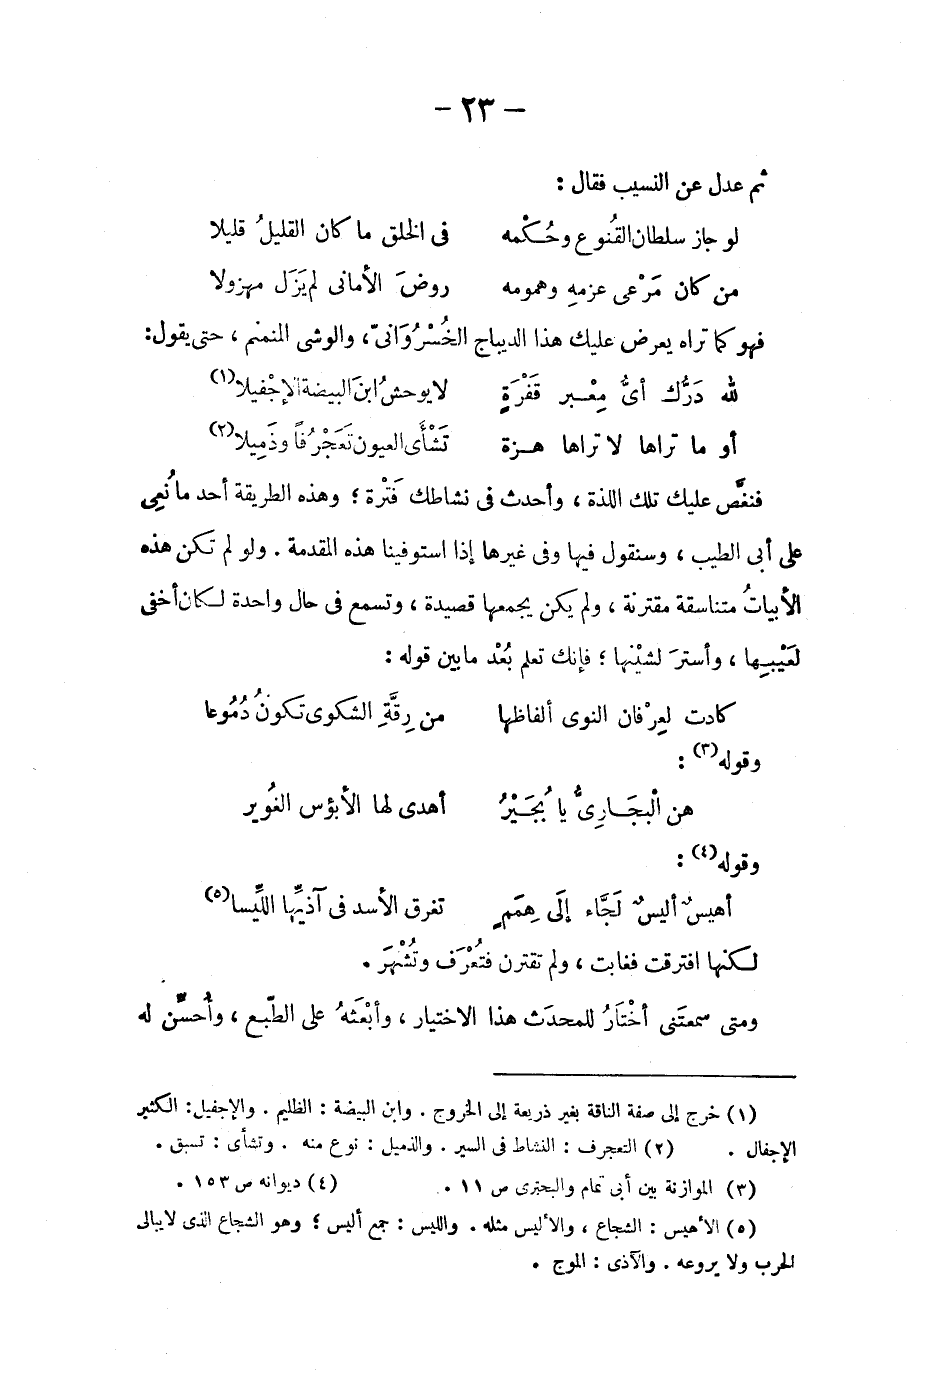 – ٢٣ –
ثم عدل عن النسيب فقال :
لو جاز سلطان القُنوع وحُكْمه في الخلق ما كان القليلُ قليلا
من كان مَرْعى عزمهِ وهمومه روضَ الأمانى لم يَزَل مهزولا
فهو كما تراه يعرض عليك هذا الديباج الخُسْرُوَانىّ، والوشى المنمنم ، حتى يقول:
لله دَرُّك أىُّ مِعْبر قَفْرَةٍ لا يوحش ابنَ البيضة الإجْفيلا(١)
أو ما تراها لا تراها هزة تَشْأَى العيون تَعَجْرُفاً وذَمِيلا(٢)
فنغَّص عليك تلك اللذة ، وأحدث فى نشاطك فَتْرة ؛ وهذه الطريقة أحد ما نُعِى
على أبى الطيب ، وسنقول فيها وفى غيرها إذا استوفينا هذه المقدمة . ولو لم تكن هذه
الأبياتُ متناسقة مقترنة ، ولم يكن يجمعها قصيدة ، وتسمع فى حال واحدة لكان أخفى
لعَيْبِها ، وأسترَ لشيْنها ؛ فإنك تعلم بُعْد ما بين قوله :
كادت لعِرْفان النوى ألفاظها من رِقَّةِ الشكوى تكونُ دُمُوعا
وقوله(٣) :
هن الْبَجَارِىُّ يا بُجَيْرُ أهدى لها الأبؤس الغُوير
وقوله(٤) :
أهيسٌ أليسٌ لَجَّاء إلَى هِمَمٍ تغرق الأسد فى آذيِّها اللِّيسا(٥)
لكنها افترقت فغابت ، ولم تقترن فتُعْرَف وتُشْهَرَ .
ومتى سمعتَنى أخْتَارُ للمحدَث هذا الاختيار ، وأبْعَثهُ على الطّبع ، وأُحسِّن له
(١) خرج إلى صفة الناقة بغير ذريعة إلى الخروج . وابن البيضة : الظليم . والإجفيل: الكثير
الإجفال . (٢) التعجرف : النشاط فى السير . والذميل : نوع منه . وتشأى : تسبق .
(٣) الموازنة بين أبى تمام والبحترى ص ١١ . (٤) ديوانه ص ١٥٣ .
(٥) الأهيس : الشجاع ، والأليس مثله . والليس : جمع أليس ؛ وهو الشجاع الذى لا يبالى
الحرب ولا يروعه . والآذى : الموج .